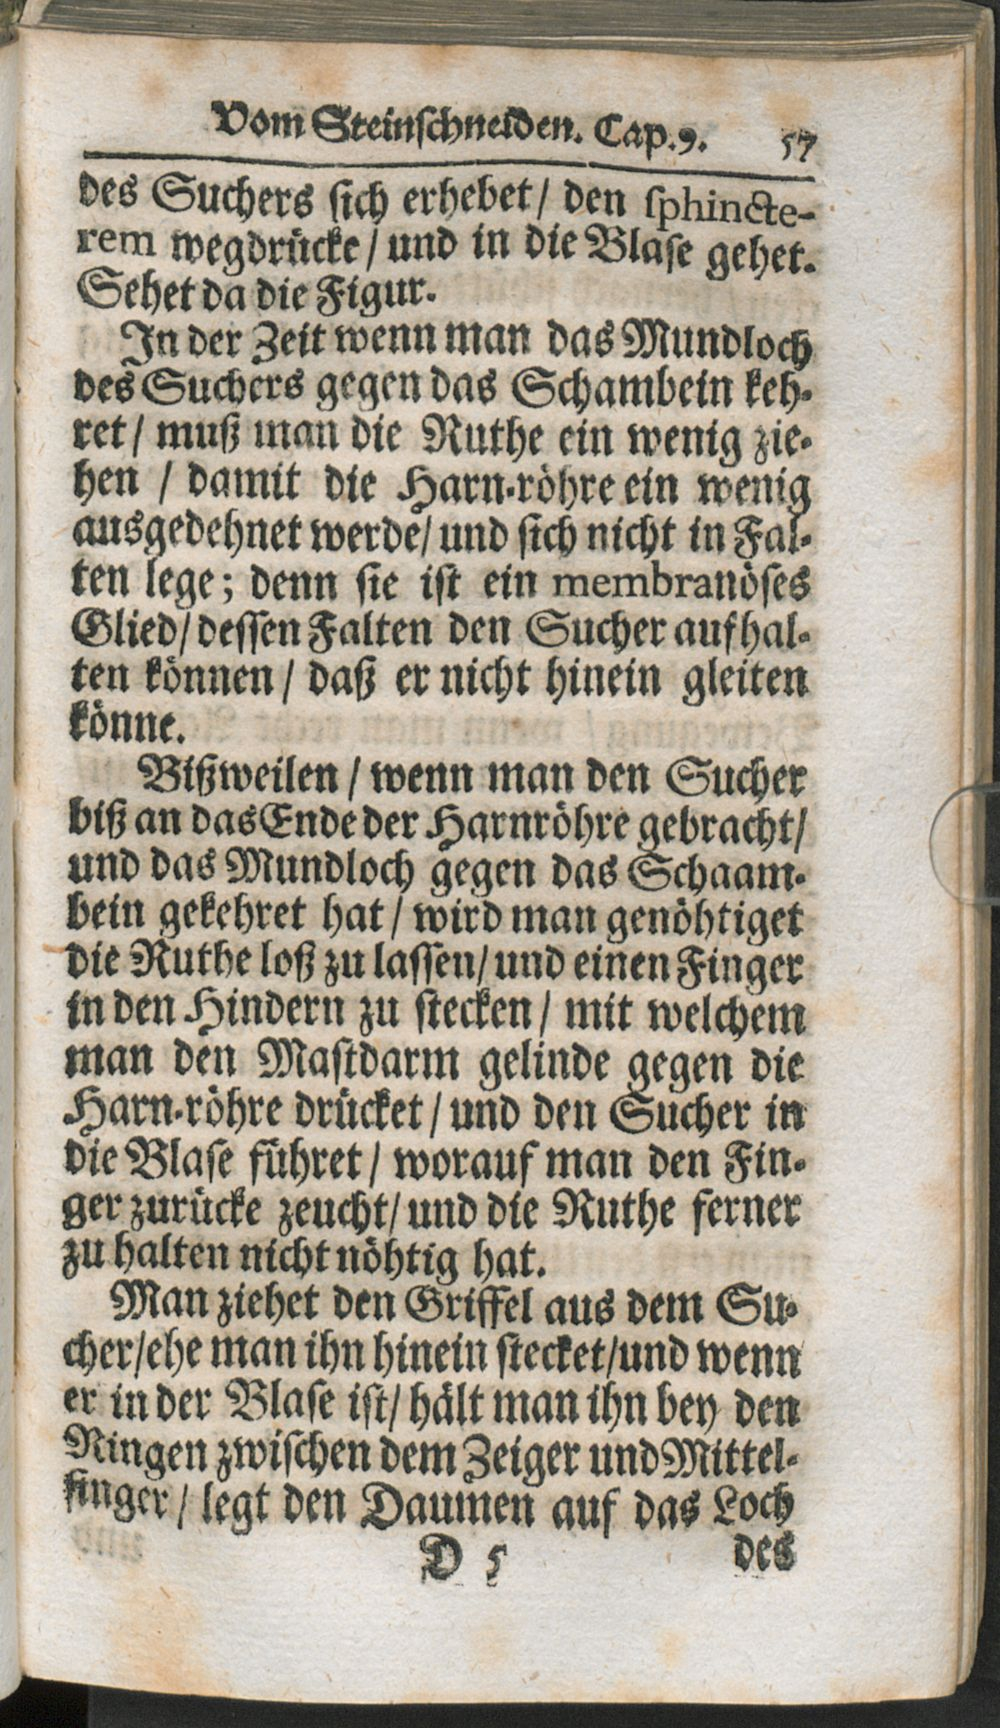 Vom Steinschneiden. Cap. 9. 57
des Suchers sich erhebet / den sphincte-
rem wegdrücke / und in die Blase gehet.
Sehet da die Figur.
In der Zeit wenn man das Mundloch
des Suchers gegen das Schambein keh-
ret / muß man die Ruthe ein wenig zie-
hen / damit die Harn-röhre ein wenig
ausgedehnet werde / und sich nicht in Fal-
ten lege; denn sie ist ein membranöses
Glied / dessen Falten den Sucher aufhal-
ten können / daß er nicht hinein gleiten
könne.
Bißweilen / wenn man den Sucher
biß an das Ende der Harnröhre gebracht /
und das Mundloch gegen das Schaam-
bein gekehret hat / wird man genöhtiget
die Ruthe loß zu lassen / und einen Finger
in den Hindern zu stecken / mit welchem
man den Mastdarm gelinde gegen die
Harn-röhre drücket / und den Sucher in
die Blase führet / worauf man den Fin-
ger zurücke zeucht / und die Ruthe ferner
zu halten nicht nöhtig hat.
Man ziehet den Griffel aus dem Su-
cher / ehe man ihn hinein stecket / und wenn
er in der Blase ist / hält man ihn bey den
Ringen zwischen dem Zeiger und Mittel-
finger / legt den Daumen auf das Loch
D 5 des